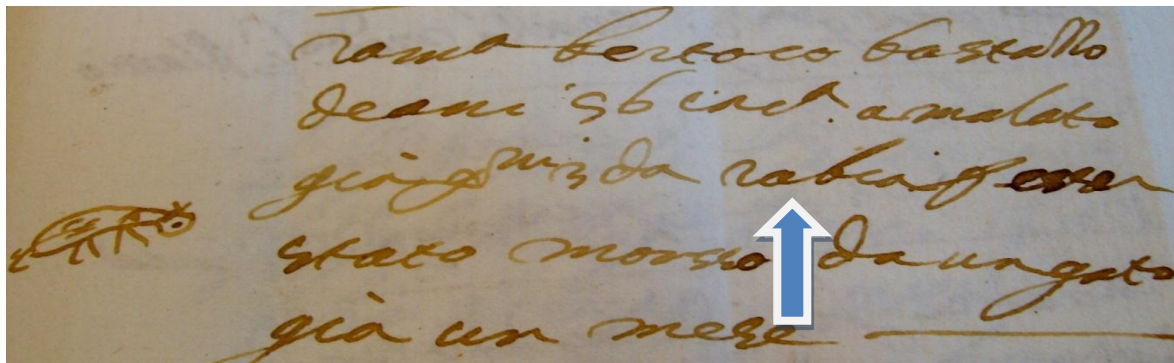 bertoco bastasso
de anni 56 inc.ª amalato
già g.ni 3 da rabia p esser
stato morso da un gato
già un mese